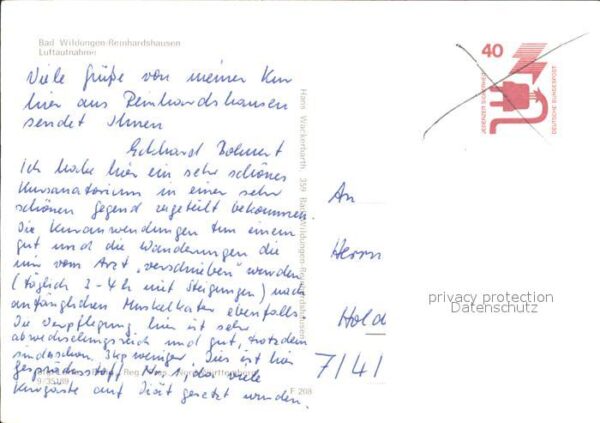 Bad Wildungen-Reinhardshausen
Luftaufnahme
Viele Grüße von meiner Kur
hier aus Reinhardshausen
sendet Ihnen
Eckhard
Ich habe hier ein sehr schönes
Kursanatorium in einer sehr
schönen Gegend zugeteilt bekommen.
Die Kuranwendungen tun einem
gut und die Wanderungen die
mir vom Arzt "verschrieben" wurden
(täglich 2-4 h mit Steigungen) nach
anfänglichen Muskelkater ebenfalls.
Die Verpflegung hier ist sehr
abwechslungsreich und gut, trotzdem
sind schon 3kg weniger. Dies ist hier
Gesprächsstoff Nr. 1, da viele
Kurgäste auf Diät gesetzt wurden.
9/35189
F 208
Hans Wackerbarth 359 Bad Wildungen-Reinhardshausen
40
JEDERZEIT SICHERHEIT
DEUTSCHE BUNDESPOST
An
Herrn
Hold
7141
privacy protection
Datenschutz